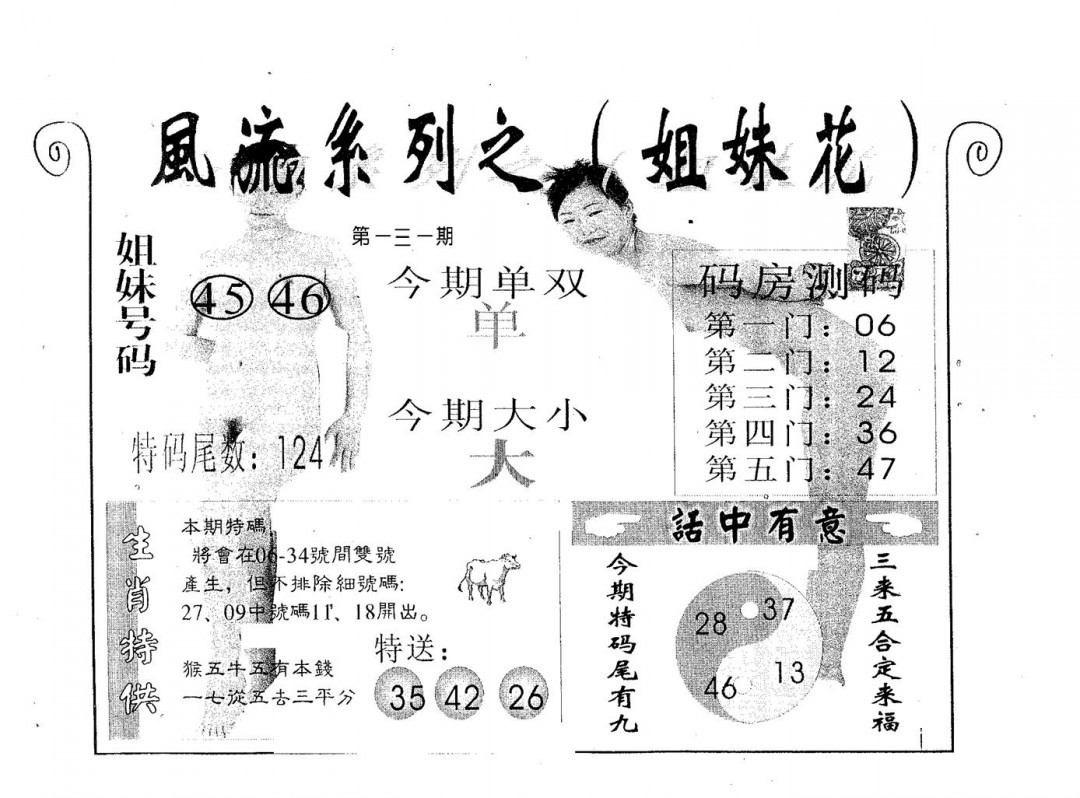 風流系列之（姐妹花）
第一三一期
姐妹号码
45 46
特码尾数：124
今期单双
单
今期大小
大
码房测码
第一门：06
第二门：12
第三门：24
第四门：36
第五门：47
生肖特供
本期特碼，
將會在06-34號間雙號
產生，但不排除細號碼：
27、09中號碼11、18開出。
猴五牛五有本錢
一七從五去三平分
特送：
35 42 26
話中有意
今期特码尾有九
28 37
46 13
三来五合定来福